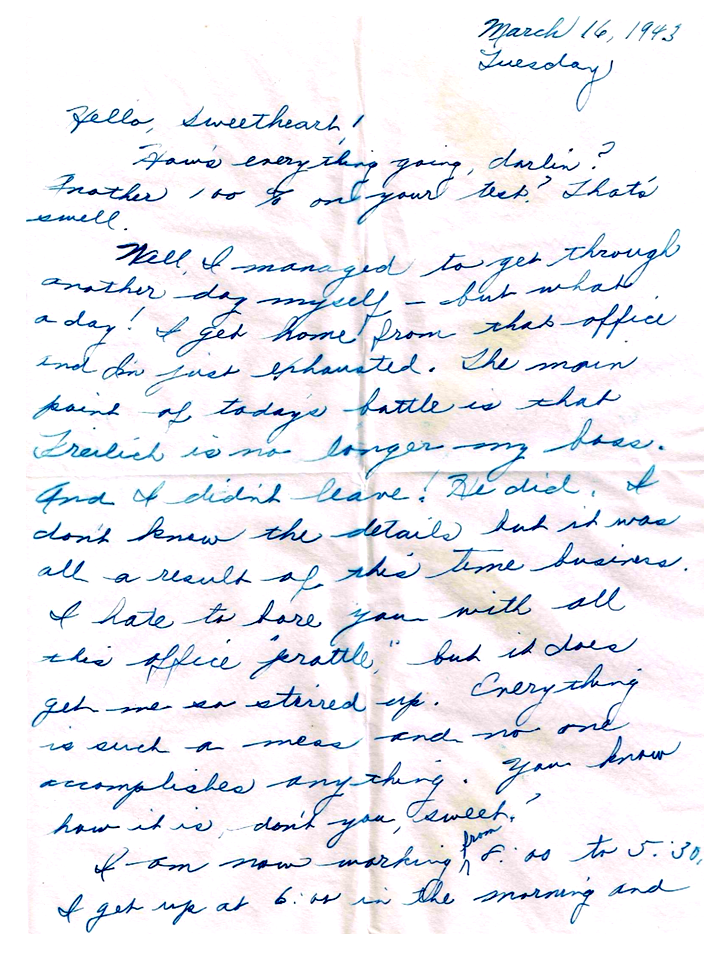 March 16, 1943
Tuesday
Hello, Sweetheart!
How's everything going, darlin'?
Another 100% on your test? That's
swell.
Well, I managed to get through
another day myself – but what
a day! I get home from that office
and I'm just exhausted. The main
point of today's battle is that
Freilich is no longer my boss.
And I didn't leave! He did. I
don't know the details but it was
all a result of this time business.
I hate to bore you with all
this office "prattle," but it does
get me so stirred up. Everything
is such a mess and no one
accomplishes anything. You know
how it is, don't you, sweet?
I am now working from 8:00 to 5:30,
I get up at 6:00 in the morning and